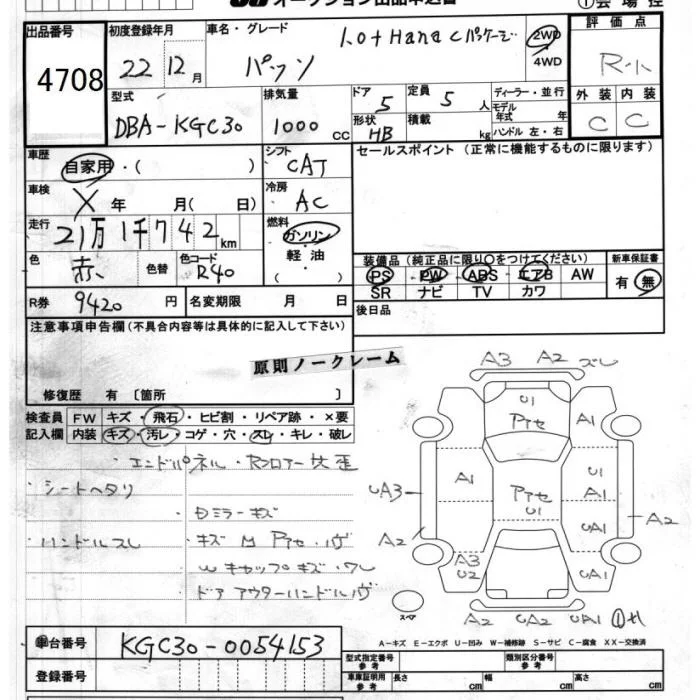 オークション出品申込書
①会場控
出品番号
4708
初度登録年月
22 12月
車名・グレード
1.0+Hana Cパッケージ
パッソ
2WD
4WD
評価点
R-ﾊ
型式
DBA-KGC30
排気量
1000 cc
ドア
5
形状
HB
定員
5 人
積載
kg
ディーラー・並行
モデル年式 年
ハンドル 左・右
外装 内装
C C
車歴
自家用・( )
シフト
CAT
セールスポイント(正常に機能するものに限ります)
車検
X 年 月( 日)
冷房
AC
走行
21万1千742km
燃料
ガソリン
軽油
( )
色
赤
色替
色コード
R40
装備品(純正品に限り○をつけてください)
新車保証書
PS PW ABS エアB AW
SR ナビ TV カワ
有・無
R券 9420円
名変期限 月 日
後日品
注意事項申告欄(不具合内容等は具体的に記入して下さい)
原則ノークレーム
修復歴 有〔箇所 〕
検査員記入欄
FW キズ・飛石・ヒビ割・リペア跡・×要
内装 キズ・汚レ・コゲ・穴・スレ・キレ・破レ
エンドパネル・Rフロアー 歪
シートヘタリ
Dミラーキズ
ハンドルスレ
キズ M アセ・ハゲ
W キャップキズ・ワレ
ドアアウターハンドルハゲ
A3 A2 ズレ
U1
アセ
A1
A1
UA3
アセ
U1
U1
A1
A2
A2
UA1
A3
U2
UA1
スペア
A2 UA2 UA1
A-キズ E-エクボ U-凹み W-補修跡 S-サビ C-腐食 XX-交換済
車台番号
KGC30-0054153
登録番号
型式指定番号 参考
類別区分番号 参考
車庫証明用 参考
長さ cm
幅 cm
高さ cm